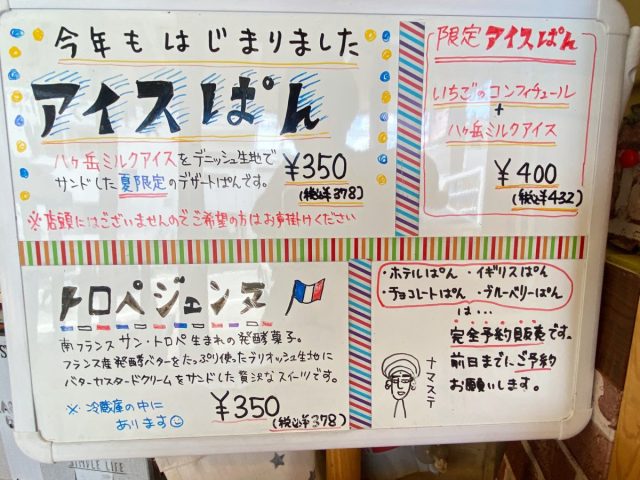 今年もはじまりました
アイスぱん
八ヶ岳ミルクアイスをデニッシュ生地で
サンドした夏限定のデザートぱんです。
¥350
(税込¥378)
※店頭にはございませんのでご希望の方はお声掛けください
限定アイスぱん
いちごのコンフィチュール
+
八ヶ岳ミルクアイス
¥400
(税込¥432)
トロペジェンヌ
南フランスサン・トロペ生まれの発酵菓子。
フランス産発酵バターをたっぷり使ったブリオッシュ生地に
バターカスタードクリームをサンドした贅沢なスイーツです。
※冷蔵庫の中に
あります
¥350
(税込¥378)
・ホテルぱん ・イギリスぱん
・チョコレートぱん ・ブルーベリーぱん
は…
完全予約販売です。
前日までにご予約
お願いします。
ナマステ
SIMPLE LIFE